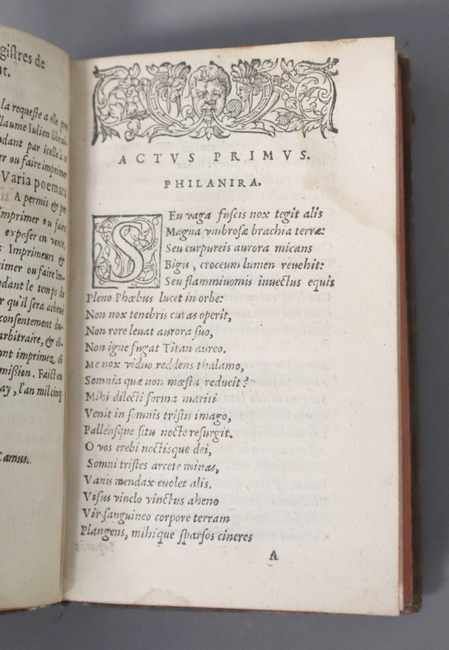 gistres de
nt.
la requeste a esté
laume Iulien
dant par icelle a
er ou faire imprimer
Varia poemata
A permis &
imprimer ou faire
exposer en vente,
s Imprimeurs &
mer ou faire
ndant le temps de
r qu'il sera acheué
consentement du
arbitraire, & di-
ont imprimez. di
mission. Faict en
ay, l'an mil cinq
Camus.
ACTVS PRIMVS.
PHILANIRA.
SEu vaga fuscis nox tegit alis
Magna vmbrosæ brachia terræ:
Seu purpureis aurora micans
Bigis, croceum lumen reuehit:
Seu flammiuomis inuectus equis
Pleno Phœbus lucet in orbe:
Non nox tenebris curas operit,
Non rore leuat aurora suo,
Non igne fugat Titan aureo.
Me nox viduo reddens thalamo,
Somnia quæ non mæsta reducit?
Mihi dilecti forma mariti
Venit in somnis tristis imago,
Pallénsque situ nocte resurgit.
O vos erebi noctisque dei,
Somni tristes arcete minas,
Vanus mendax euolet alis.
Visus vinclo vinctus aheno
Vir sanguineo corpore terram
Plangens, mihique sparsos cineres
A